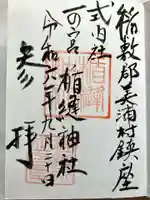 稲敷郡美浦村鎮座
式内社
一の宮 楯縫神社
令和二年九月二十日
参拝